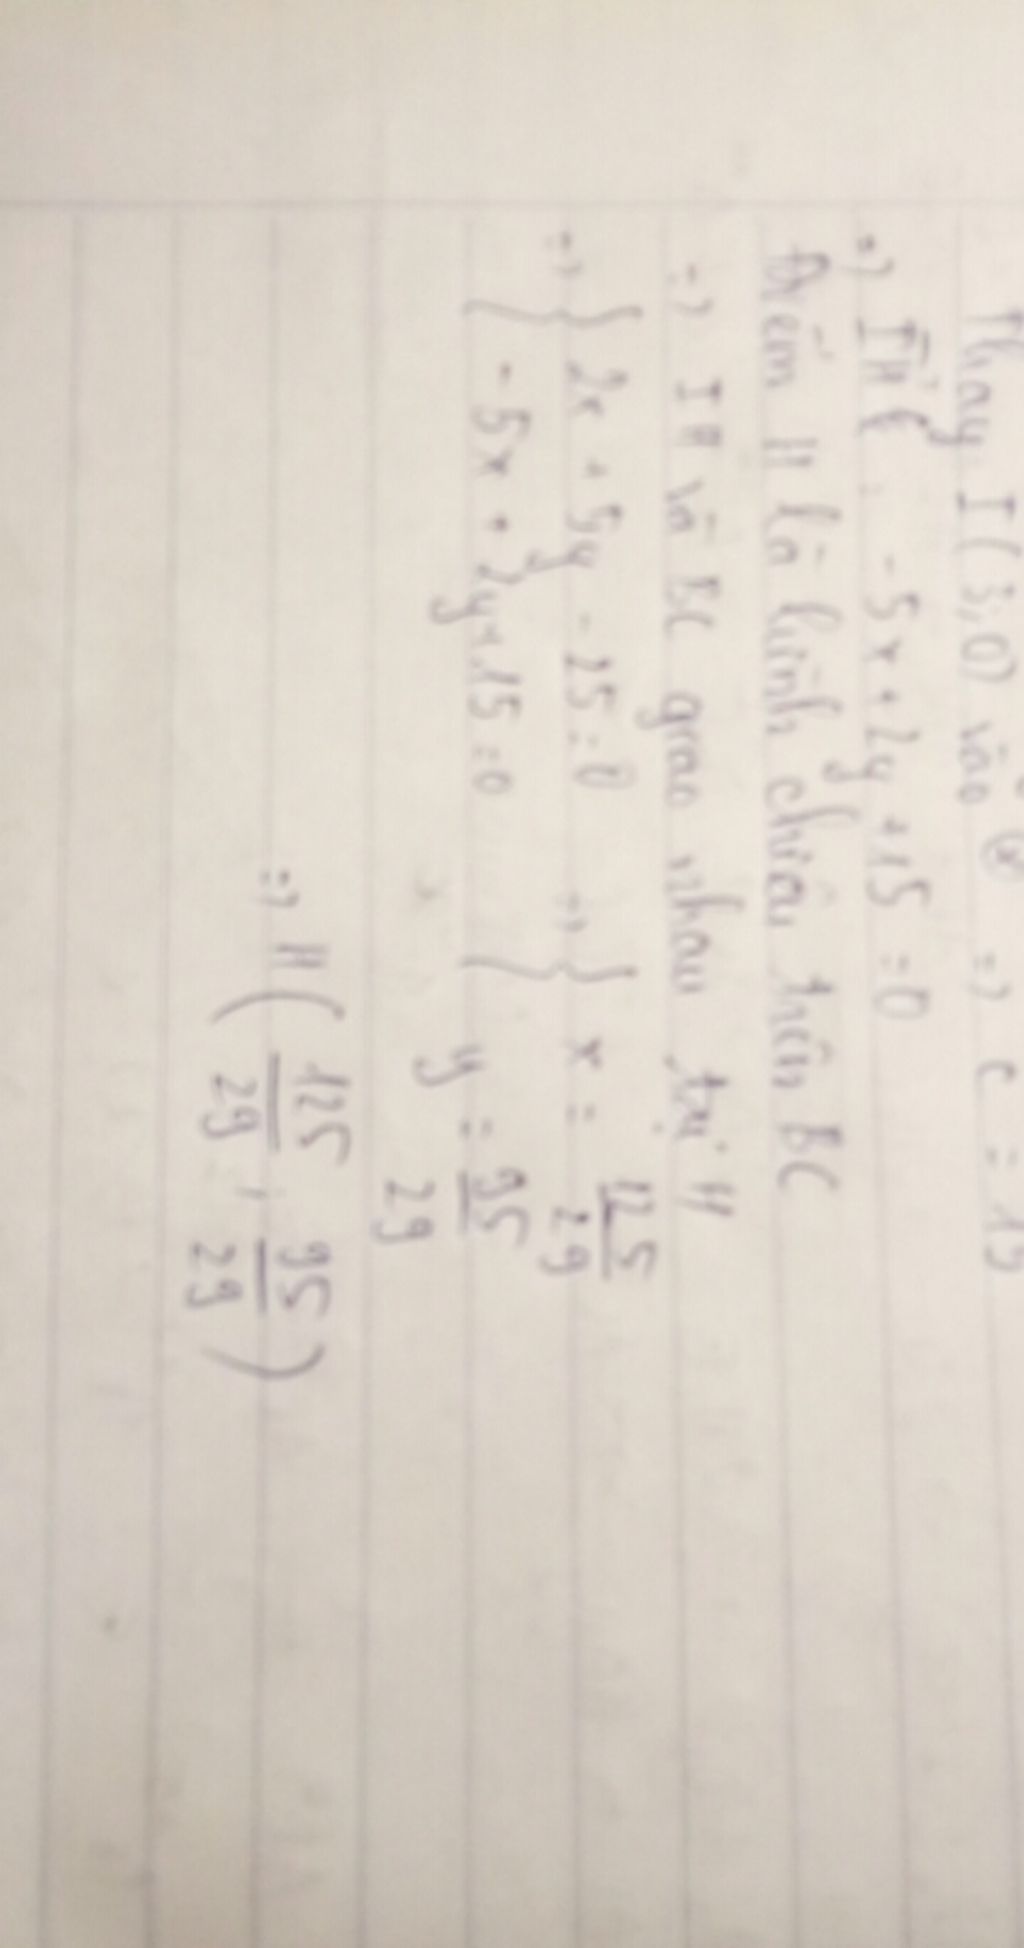 Thay I(3,0) vào ⊛ => c = 15
=> IH: -5x + 2y + 15 = 0
Điểm H là hình chiếu trên BC
=> IH và BC giao nhau tại H
=> { 2x + 5y - 25 = 0 => { x = 125/29
{ -5x + 2y + 15 = 0 { y = 95/29
=> H ( 125/29 , 95/29 )